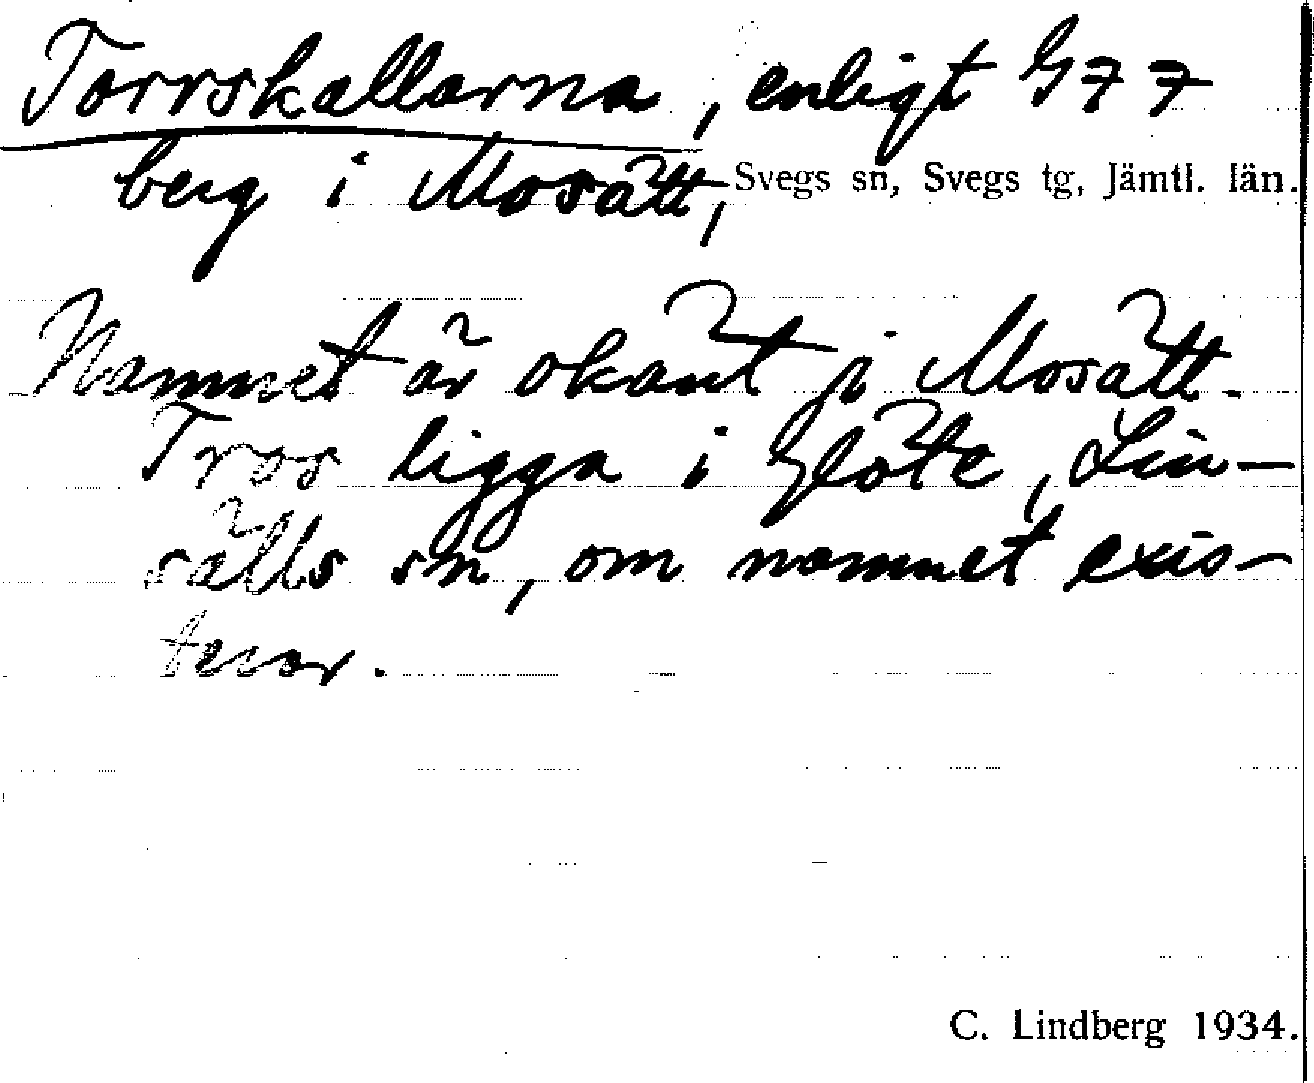 Torrskallarna, enligt G77
berg i Mosätt, Svegs sn, Svegs tg, Jämtl. län.
Namnet är okänt i Mosätt.
Tros ligga i Glöte, Lin-
sälls sn, om namnet exis-
terar.
C. Lindberg 1934.